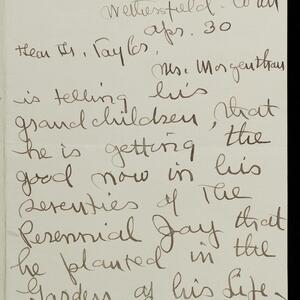 Wethersfield. Conn
Apr. 30
Dear Dr. Taylor,
Mr. Morgenthau
is telling his
grandchildren, that
he is getting the
good now in his
seventies of The
Perennial Joy that
he planted in the
Garden of his Life.